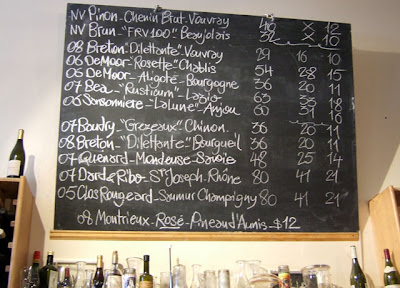 NV Pinon - Chenin Brut - Vouvray 46 X 12
NV Brun - "FRV100" Beaujolais 32 X 10
08 Breton "Dilettante" - Vouvray 29 16 10
06 DeMoor - "Rosette" Chablis 54 28 15
06 DeMoor - Aligoté - Bourgogne 36 20 11
07 Bea - "Rusticum" - Lazio 63 33
06 Sansonniere - "Lalune" - Anjou 60 31
07 Baudry - "Grezeaux" Chinon. 36 20 11
08 Breton - "Dilettante" Bourgueil 36 20 11
07 Quenard - Mondeuse - Savoie 48 25 14
07 Dard e Ribo - St. Joseph - Rhône 80 41 21
05 Clos Rougeard - Saumur Champigny 80 41 21
08 Montrieux - Rosé - Pineau d'Aunis - $12